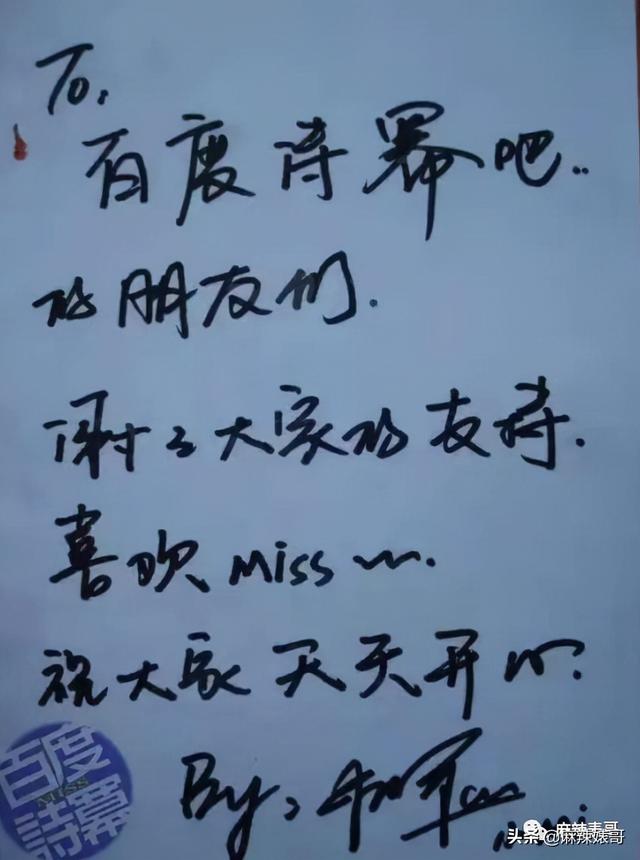 To.
百度诗幂吧..
的朋友们.
谢谢大家的支持.
喜欢 Miss ~.
祝大家天天开心.
By:
百度
MISS
詩幂
麻辣表哥
头条@麻辣婊哥